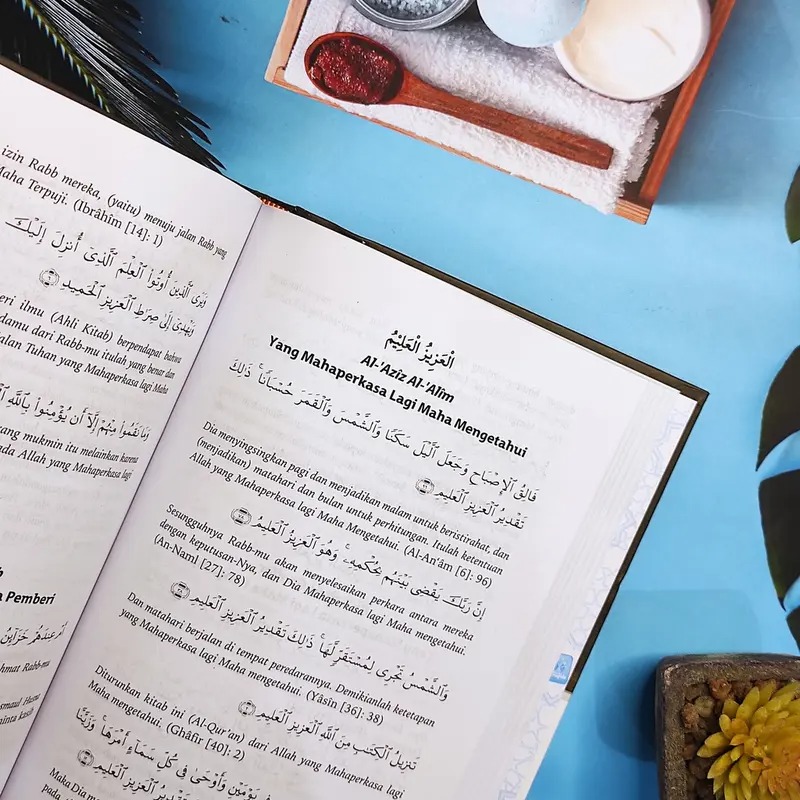 izin Rabb mereka, (yaitu) menuju jalan Rabb yang
Maha Terpuji. (Ibrâhîm [14]: 1)
وَيَرَى ٱلَّذِينَ أُوتُوا۟ ٱلْعِلْمَ ٱلَّذِىٓ أُنزِلَ إِلَيْكَ
وَيَهْدِىٓ إِلَىٰ صِرَٰطِ ٱلْعَزِيزِ ٱلْحَمِيدِ ٦
eri ilmu (Ahli Kitab) berpendapat bahwa
damu dari Rabb-mu itulah yang benar dan
jalan Tuhan yang Mahaperkasa lagi Maha
وَمَا نَقَمُوا۟ مِنْهُمْ إِلَّآ أَن يُؤْمِنُوا۟ بِٱللَّهِ
ang mukmin itu melainkan karena
ada Allah yang Mahaperkasa lagi
a Pemberi
أَمْ عِندَهُمْ خَزَآئِنُ
hmat Rabb-mu
smaul Husna
minta kasih
الْعَزِيزُ الْعَلِيْمُ
Al-'Azîz Al-'Alîm
Yang Mahaperkasa Lagi Maha Mengetahui
فَالِقُ ٱلْإِصْبَاحِ وَجَعَلَ ٱلَّيْلَ سَكَنًا وَٱلشَّمْسَ وَٱلْقَمَرَ حُسْبَانًا ۚ ذَٰلِكَ
تَقْدِيرُ ٱلْعَزِيزِ ٱلْعَلِيمِ ٩٦
Dia menyingsingkan pagi dan menjadikan malam untuk beristirahat, dan
(menjadikan) matahari dan bulan untuk perhitungan. Itulah ketentuan
Allah yang Mahaperkasa lagi Maha Mengetahui. (Al-An'âm [6]: 96)
إِنَّ رَبَّكَ يَقْضِى بَيْنَهُم بِحُكْمِهِۦ ۚ وَهُوَ ٱلْعَزِيزُ ٱلْعَلِيمُ ٧٨
Sesungguhnya Rabb-mu akan menyelesaikan perkara antara mereka
dengan keputusan-Nya, dan Dia Mahaperkasa lagi Maha mengetahui.
(An-Naml [27]: 78)
وَٱلشَّمْسُ تَجْرِى لِمُسْتَقَرٍّ لَّهَا ۚ ذَٰلِكَ تَقْدِيرُ ٱلْعَزِيزِ ٱلْعَلِيمِ ٣٨
Dan matahari berjalan di tempat peredarannya. Demikianlah ketetapan
yang Mahaperkasa lagi Maha mengetahui. (Yâsîn [36]: 38)
تَنزِيلُ ٱلْكِتَٰبِ مِنَ ٱللَّهِ ٱلْعَزِيزِ ٱلْعَلِيمِ ٢
Diturunkan kitab ini (Al-Qur'an) dari Allah yang Mahaperkasa lagi
Maha mengetahui. (Ghâfir [40]: 2)
فِى يَوْمَيْنِ وَأَوْحَىٰ فِى كُلِّ سَمَآءٍ أَمْرَهَا ۚ وَزَيَّنَّا
تَقْدِيرُ ٱلْعَزِيزِ ٱلْعَلِيمِ
Maka Dia m
pada